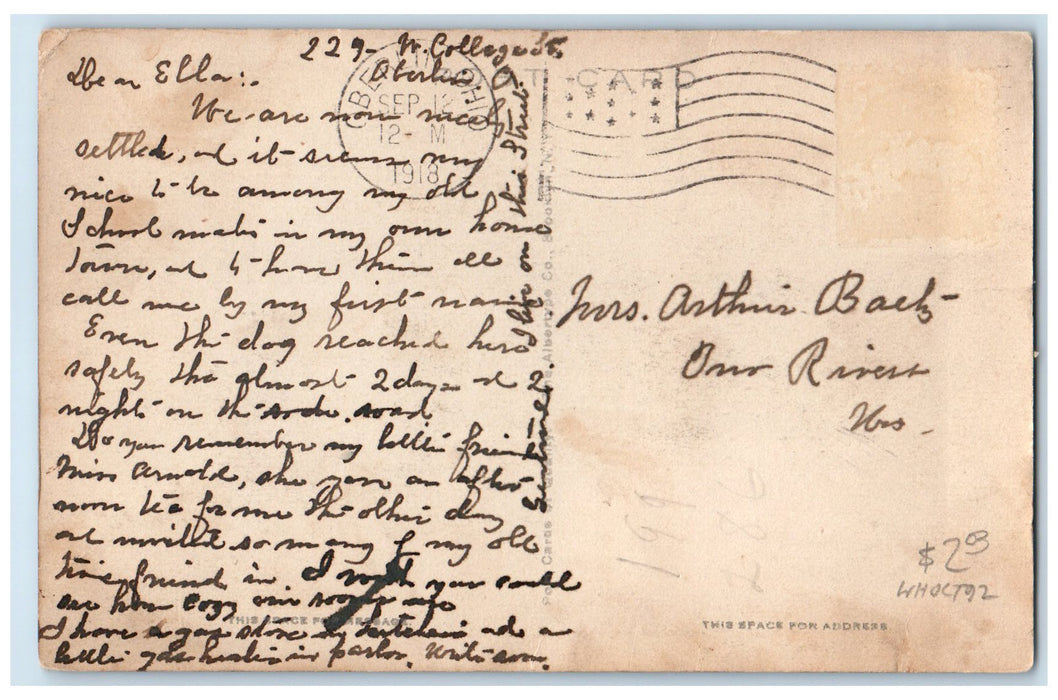 229- W. College St.
Oberlin O.
Dear Ella:-
We are now nicely
settled, and it seems very
nice to be among my old
School mates in my own home
town, and to have them all
call me by my first name
Even the dog reached here
safely tho almost 2 days and 2
nights on the road.
Do you remember my little friend
Miss Arnold, she gave an after
noon tea for me the other day
and invited so many of my old
time friends in. I wish you could
see how cozy our rooms are
I have a gas stove in kitchen and a
little gas heater in parlor. Write soon.
I live on this Street
OBERLIN
OHIO
SEP 12
12- M
1918
POST CARD
Mrs. Arthur Baetz
Two Rivers
Wis.
199
$2.00
WHOCT92
THIS SPACE FOR MESSAGE
THIS SPACE FOR ADDRESS
Post Cards of Quality. The Albertype Co., Brooklyn, N.Y.